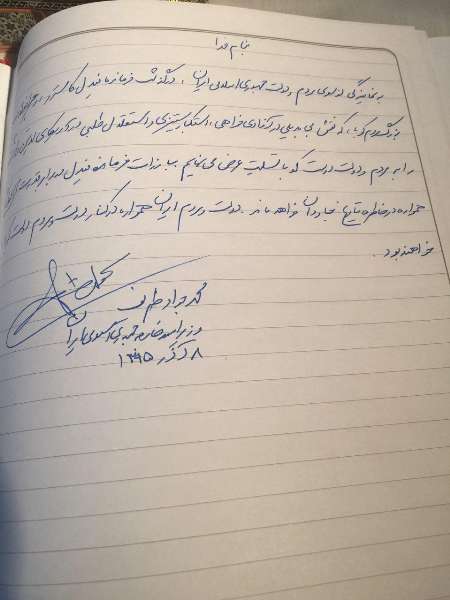 بنام خدا
به نمایندگی از سوی مردم و دولت جمهوری اسلامی ایران، درگذشت فرمانده فیدل کاسترو، رهبر
بزرگ مردم کوبا، که نقش بی بدیلی در آزادی خواهی، استکبارستیزی و استقلال طلبی در آمریکای لاتین
را به مردم و دولت دوست کوبا تسلیت عرض می نمایم. مبارزات فرمانده فیدل
همواره در خاطره تاریخ جاودان خواهد ماند. دولت و مردم ایران همواره در کنار دولت و مردم دوست
خواهند بود.
محمد جواد ظریف
وزیر امور خارجه جمهوری اسلامی ایران
۸ آذر ۱۳۹۵